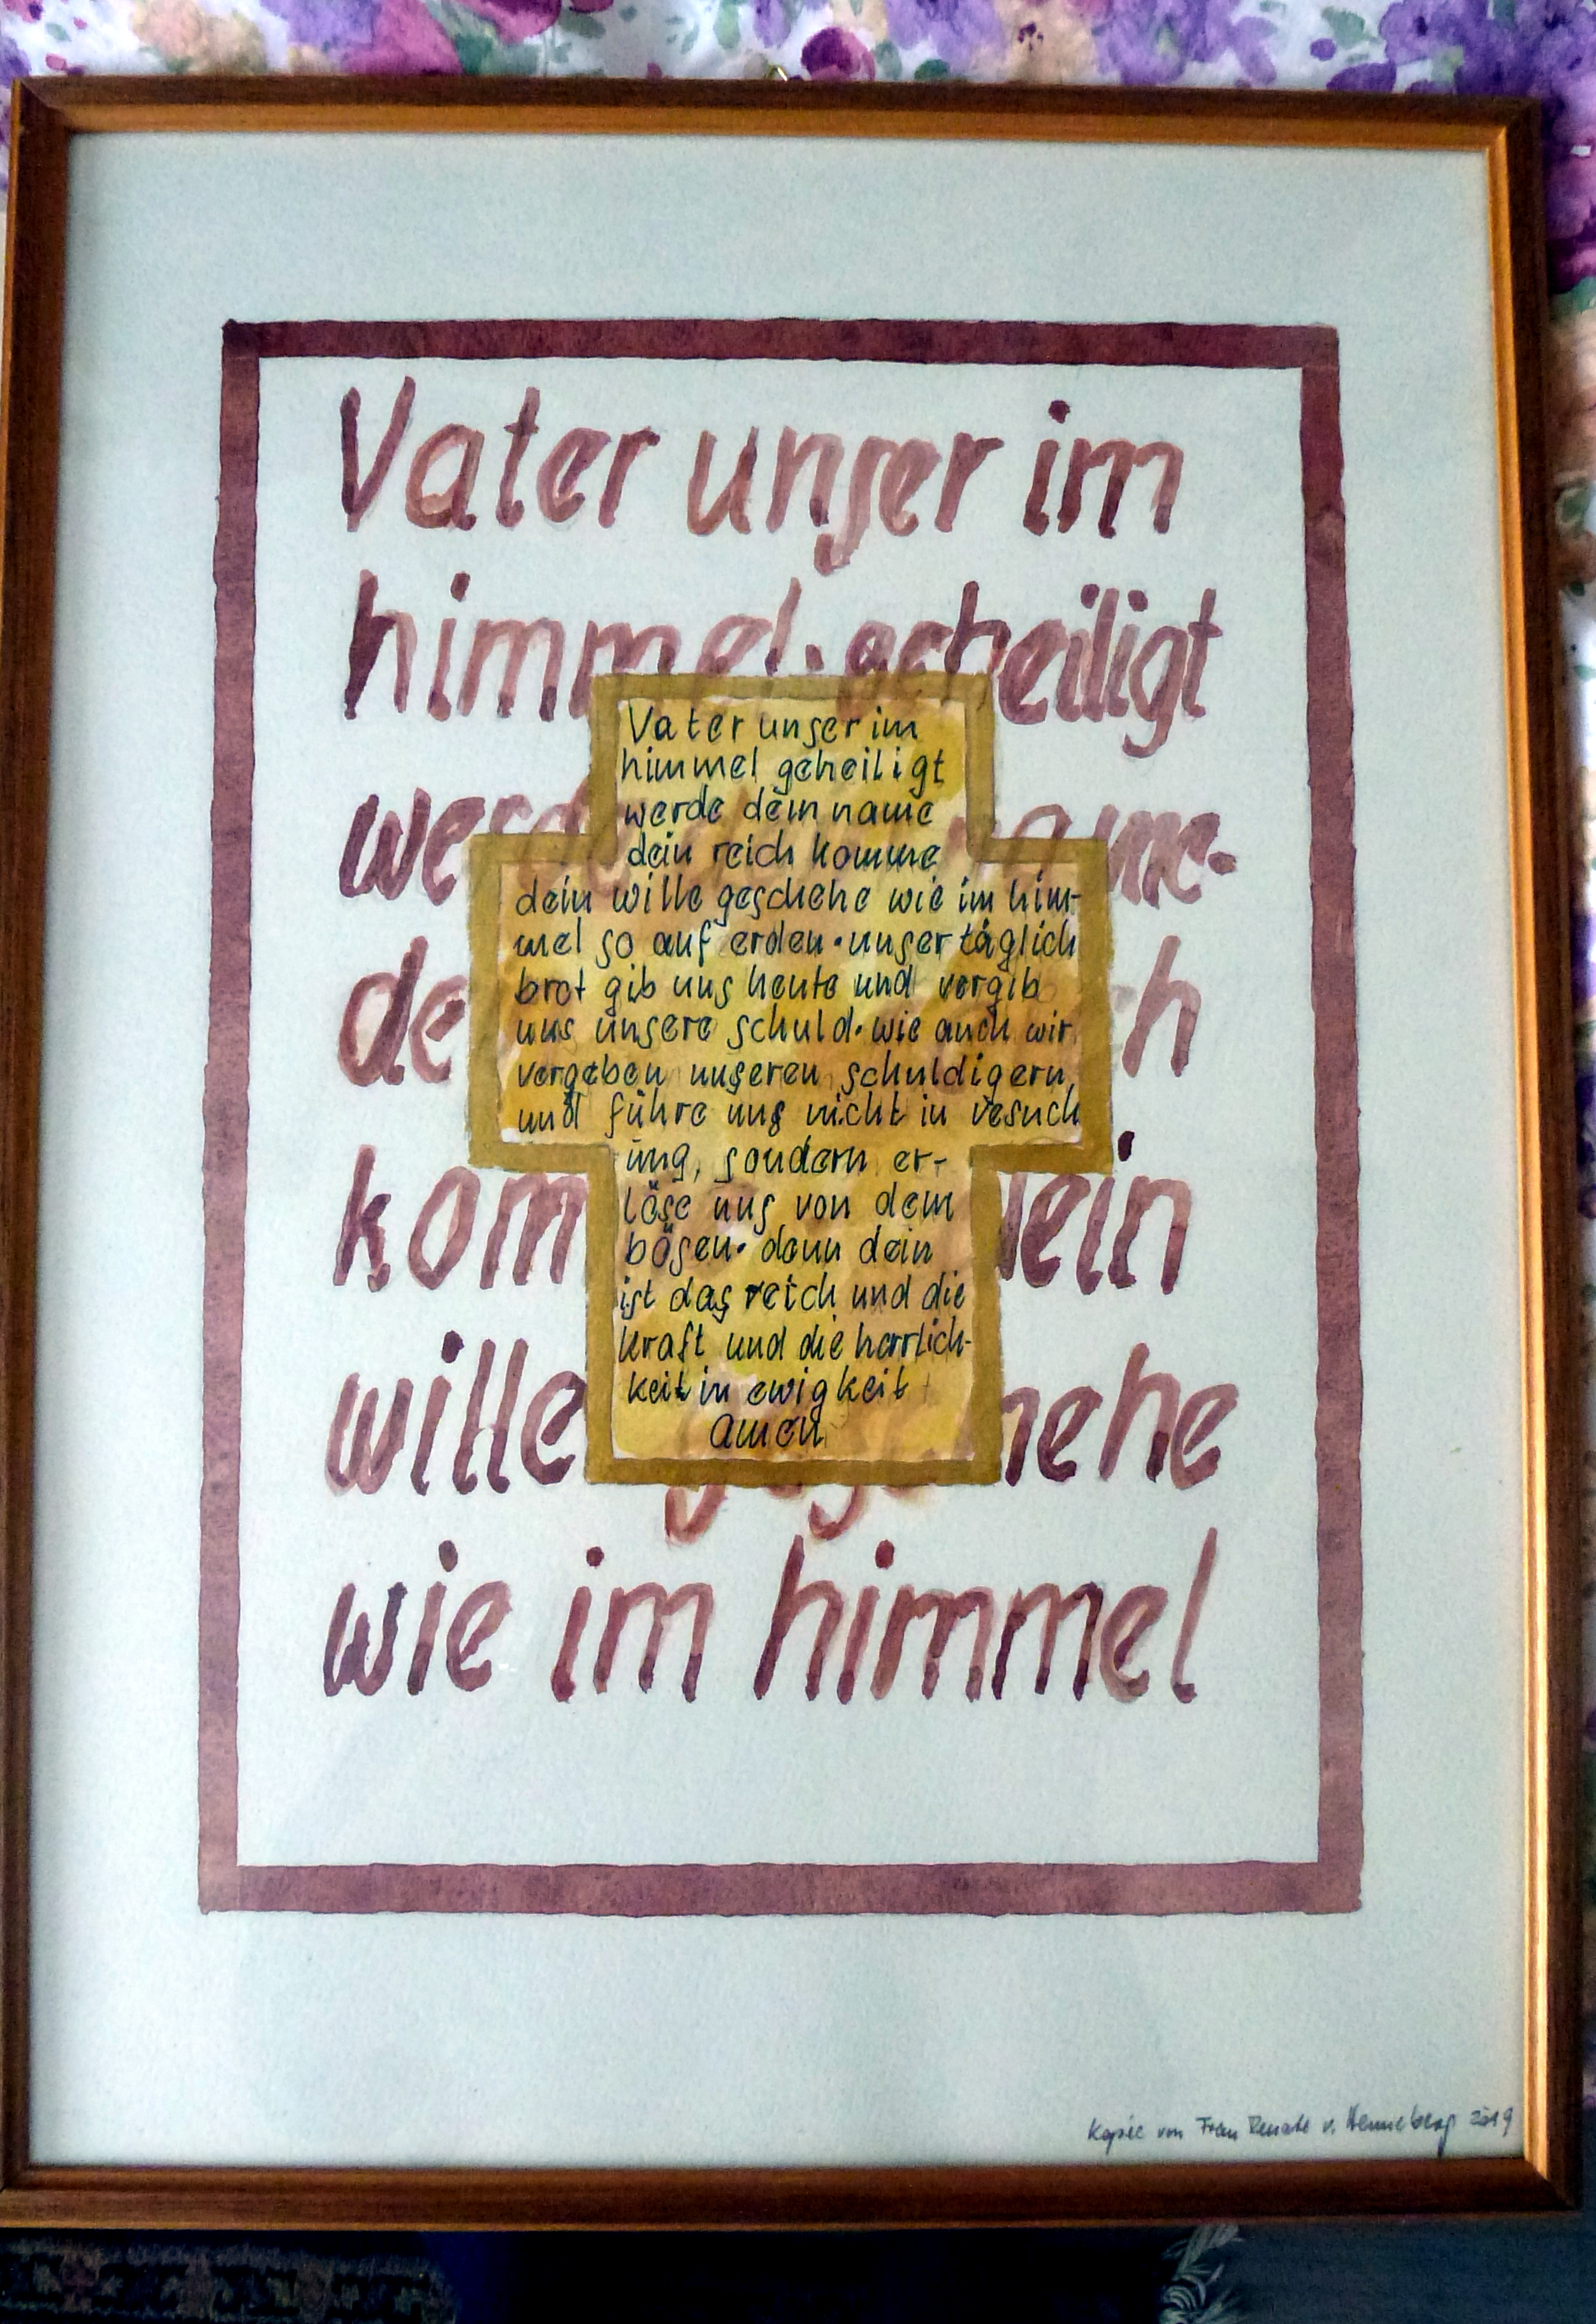 Vater unser im
himmel · geheiligt
wer
ame·
de
ch
kom
dein
wille
hehe
wie im himmel
Vater unser im
himmel geheiligt
werde dein name
dein reich komme
dein wille geschehe wie im him-
mel so auf erden · unser täglich
brot gib uns heute und vergib
uns unsere schuld · wie auch wir
vergeben unseren schuldigern
und führe uns nicht in vesuch
ung, sondern er-
löse uns von dem
bösen · denn dein
ist das reich und die
kraft und die herrlich-
keit in ewigkeit
amen
Kopie von Frau Renate v. Henneberg 2019